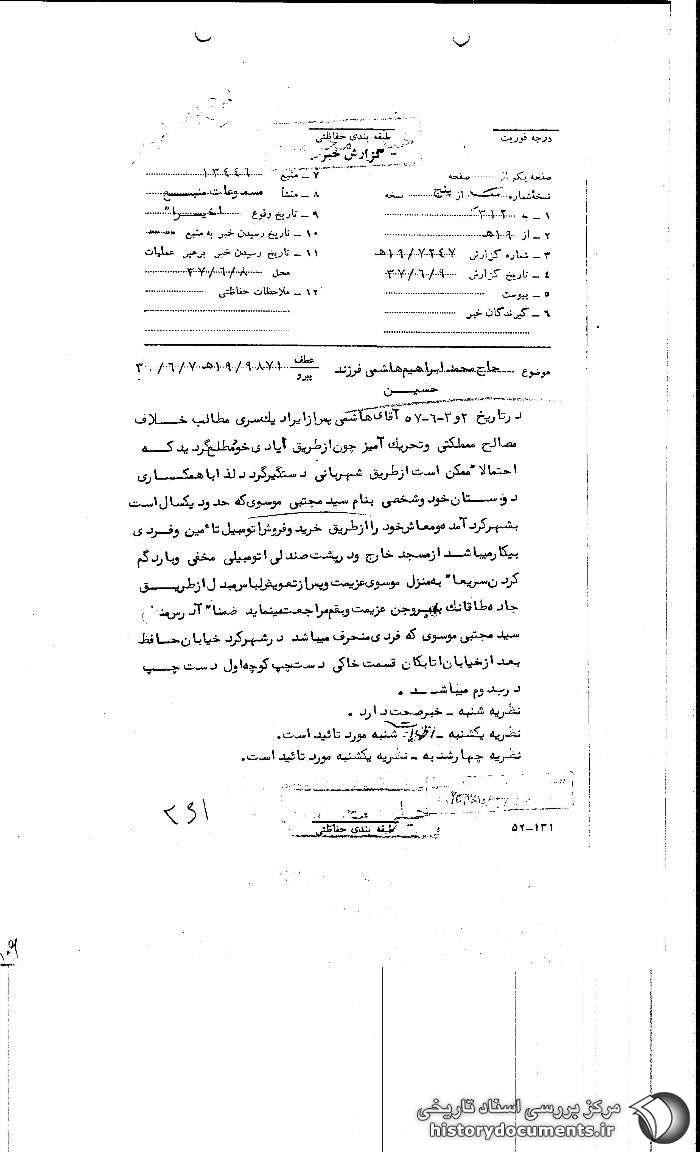 درجه فوریت
طبقه بندی حفاظتی
گزارش خبر
صفحه یکم از صفحه
نسخهٔ شماره از پنج نسخه
۱ – به ۳۱۲
۲ – از ۱۹ﻫ
۳ – شماره گزارش ۱۹/۷۲۴۷ﻫ
۴ – تاریخ گزارش ۳۷/۰۶/۰۹
۵ – پیوست
۶ – گیرندگان خبر
۷ – منبع ۱۳۴۴۶
۸ – منشأ مسموعات منبع
۹ – تاریخ وقوع اخیرا"
۱۰ – تاریخ رسیدن خبر به منبع
۱۱ – تاریخ رسیدن خبر برهبر عملیات
محل ۳۷/۰۶/۰۸
۱۲ – ملاحظات حفاظتی
موضوع حاج محمدابراهیم هاشمی فرزند حسین
عطف
پیرو
۱۹/۹۸۷۱ﻫ ۳۰/۰۶/۰۷
در تاریخ ۲و۳-۶-۵۷ آقای هاشمی پس از ایراد یک سری مطالب خلاف
مصالح مملکتی وتحریک آمیز چون از طریق ایادی خود مطلع گردید که
احتمالا" ممکن است از طریق شهربانی دستگیر گردد لذا با همکاری
دوستان خود وشخصی بنام سید مجتبی موسوی که حدود یکسال است
بشهرکرد آمده ومعاش خود را از طریق خرید وفروش اتومبیل تأمین وفردی
بیکار میباشد از مسجد خارج ودر پشت صندلی اتومبیلی مخفی وبا رد گم
کردن سریعا" به منزل موسوی عزیمت وپس از تعویض لباس مبدل از طریق
جاده طاقانک به بروجن عزیمت وبقم مراجعت مینماید ضمنا" آدرس
سید مجتبی موسوی که فردی منحرف میباشد در شهرکرد خیابان حافظ
بعد از خیابان اتابکان قسمت خاکی دست چپ کوچه اول دست چپ
درب دوم میباشد .
نظریه شنبه – خبر صحت دارد .
نظریه یکشنبه – نظریه شنبه مورد تائید است.
نظریه چهارشنبه – نظریه یکشنبه مورد تائید است.
طبقه بندی حفاظتی
۵۲-۱۳۱
مرکز بررسی اسناد تاریخی
historydocuments.ir